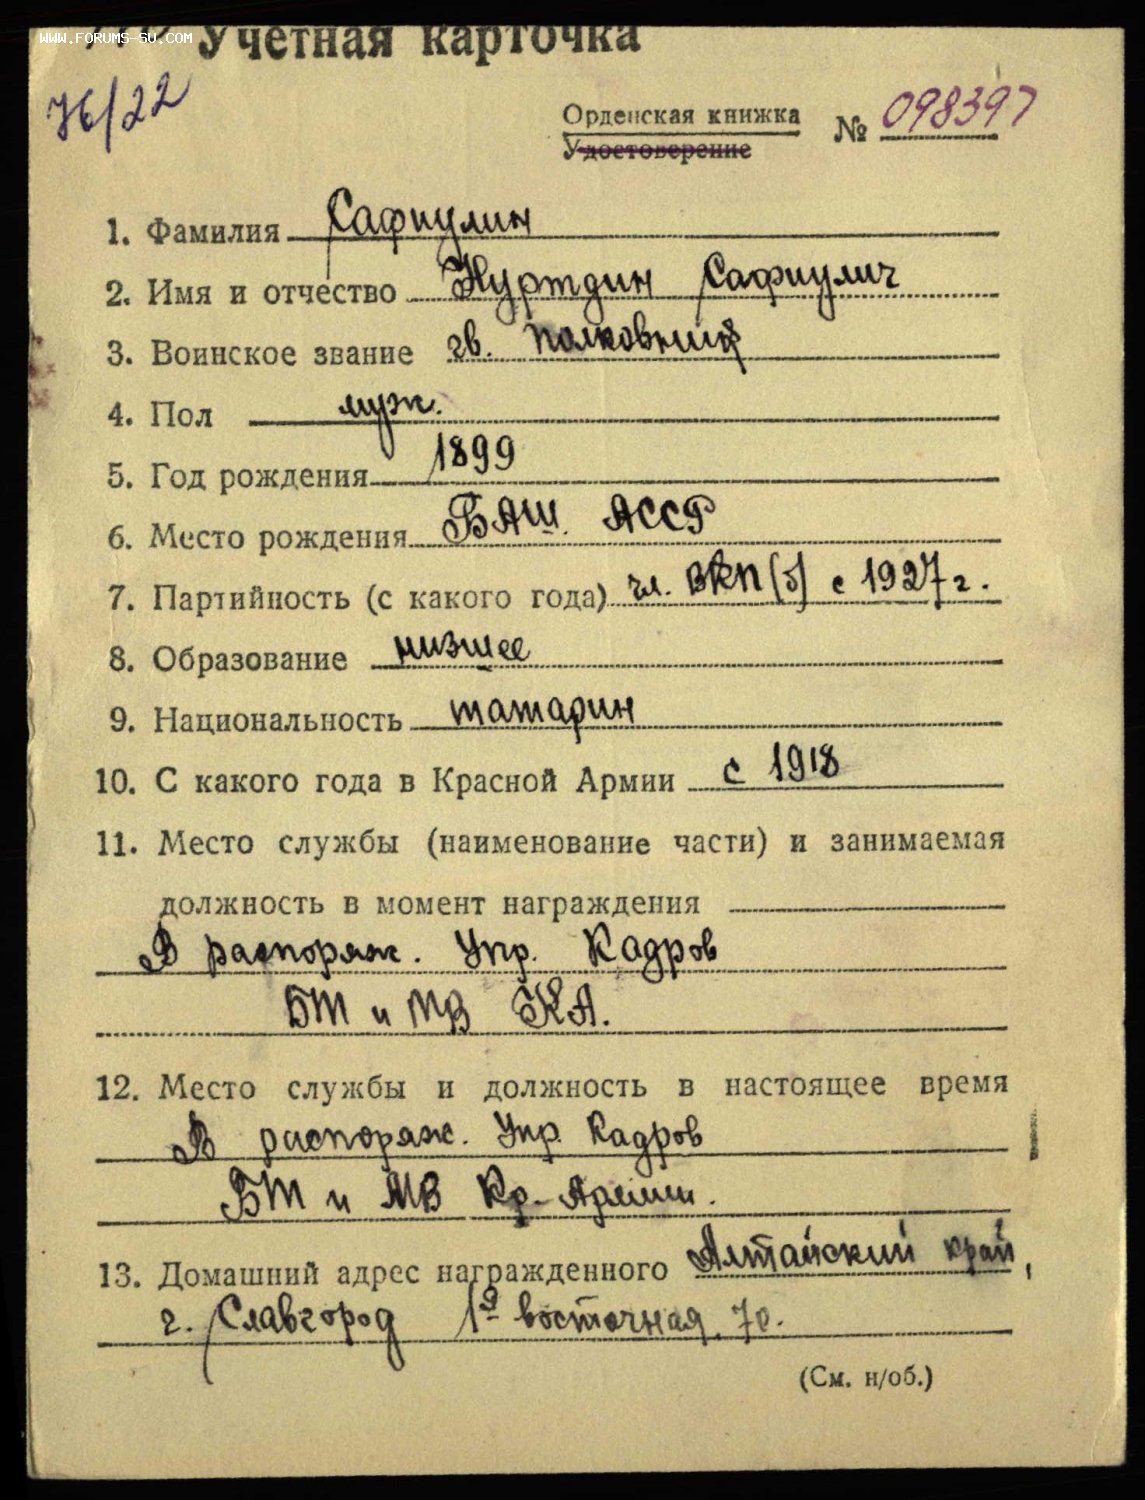 WWW.FORUMS-SU.COM
Учетная карточка
76/22
Орденская книжка
Удостоверение
№ 098397
1. Фамилия Сафиулин
2. Имя и отчество Нуртдин Сафиулич
3. Воинское звание гв. полковник
4. Пол муж.
5. Год рождения 1899
6. Место рождения БАШ. АССР
7. Партийность (с какого года) чл. ВКП(б) с 1927 г.
8. Образование низшее
9. Национальность татарин
10. С какого года в Красной Армии с 1918
11. Место службы (наименование части) и занимаемая
должность в момент награждения
В распоряж. Упр. Кадров
БТ и МВ КА.
12. Место службы и должность в настоящее время
В распоряж. Упр. Кадров
БТ и МВ Кр. Армии.
13. Домашний адрес награжденного Алтайский край,
г. Славгород 1я восточная 70.
(См. н/об.)